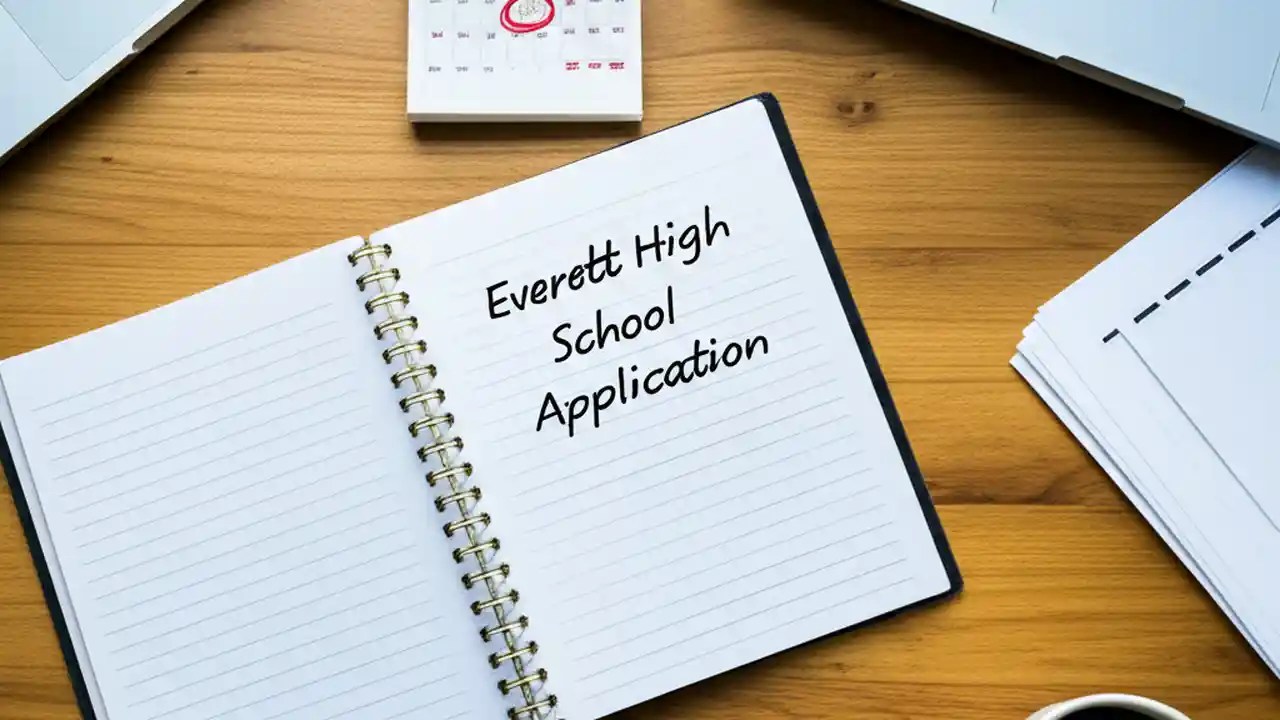 Everett High
School
Application